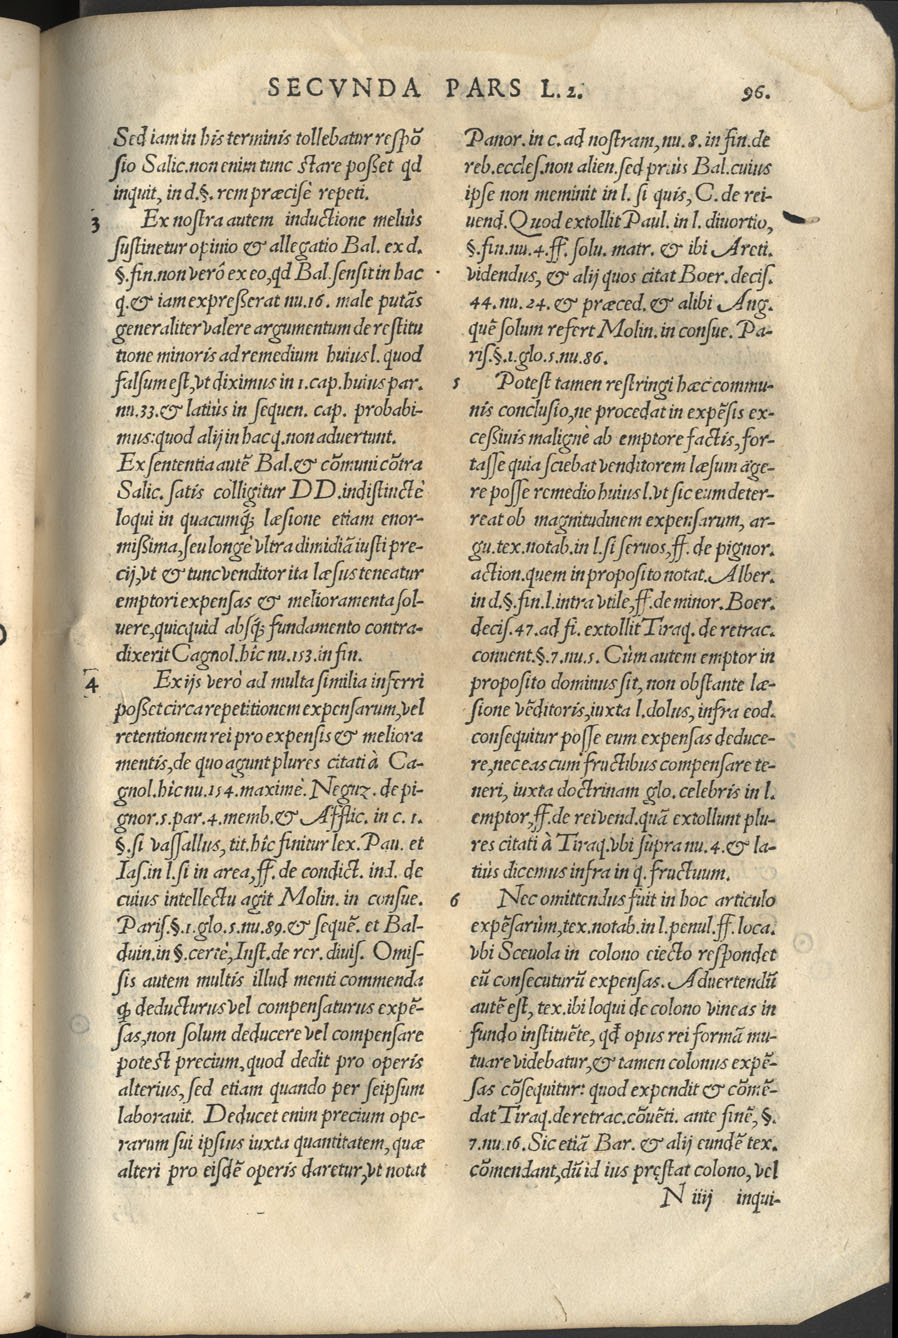 SECVNDA PARS L. 2.
96.
Sed iam in his terminis tollebatur respō
sio Salic. non enim tunc stare posset qd
inquit, in d. §. rem præcisè repeti.
3
Ex nostra autem inductione meliùs
sustinetur opinio & allegatio Bal. ex d.
§. fin. non verò ex eo, qd Bal. sensit in hac
q. & iam expresserat nu. 16. male putās
generaliter valere argumentum de restitu
tione minoris ad remedium huius l. quod
falsum est, vt diximus in 1. cap. huius par.
nu. 33. & latiùs in sequen. cap. probabi-
mus: quod alij in hac q. non aduertunt.
Ex sententia autē Bal. & cōmuni cōtra
Salic. satis colligitur DD. indistinctè
loqui in quacumq; læsione etiam enor-
missima, seu longè vltra dimidiā iusti pre-
cij, vt & tunc venditor ita læsus teneatur
emptori expensas & melioramenta sol-
uere, quicquid absq; fundamento contra-
dixerit Cagnol. hîc nu. 153. in fin.
4
Ex ijs verò ad multa similia inferri
posset circa repetitionem expensarum, vel
retentionem rei pro expensis & meliora
mentis, de quo agunt plures citati à Ca-
gnol. hîc nu. 154. maximè. Neguz. de pi-
gnor. 5. par. 4. memb. & Afflic. in c. 1.
§. si vassallus, tit. hîc finitur lex. Pau. et
Ias. in l. si in area, ff. de condict. ind. de
cuius intellectu agit Molin. in consue.
Paris. §. 1. glo. 5. nu. 89. & sequē. et Bal-
duin. in §. certè, Inst. de rer. diuis. Omis-
sis autem multis illud menti commenda
q; deducturus vel compensaturus expē-
sas, non solum deducere vel compensare
potest precium, quod dedit pro operis
alterius, sed etiam quando per seipsum
laborauit. Deducet enim precium ope-
rarum sui ipsius iuxta quantitatem, quæ
alteri pro eisdē operis daretur, vt notat
Panor. in c. ad nostram, nu. 8. in fin. de
reb. eccles. non alien. sed priùs Bal. cuius
ipse non meminit in l. si quis, C. de rei-
uend. Quod extollit Paul. in l. diuortio,
§. fin. nu. 4. ff. solu. matr. & ibi Areti.
videndus, & alij quos citat Boer. decis.
44. nu. 24. & præced. & alibi Ang.
quē solum refert Molin. in consue. Pa-
ris. §. 1. glo. 5. nu. 86.
5
Potest tamen restringi hæc commu-
nis conclusio, ne procedat in expēsis ex-
cessiuis malignè ab emptore factis, for-
tasse quia sciebat venditorem læsum āge-
re posse remedio huius l. vt sic eum deter-
reat ob magnitudinem expensarum, ar-
gu. tex. notab. in l. si seruos, ff. de pignor.
action. quem in proposito notat. Alber.
in d. §. fin. l. intra vtile, ff. de minor. Boer.
decis. 47. ad fi. extollit Tiraq. de retrac.
conuent. §. 7. nu. 5. Cùm autem emptor in
proposito dominus sit, non obstante læ-
sione vēditoris, iuxta l. dolus, infra eod.
consequitur posse eum expensas deduce-
re, nec eas cum fructibus compensare te-
neri, iuxta doctrinam glo. celebris in l.
emptor, ff. de rei vend. quā extollunt plu-
res citati à Tiraq. vbi supra nu. 4. & la-
tiùs dicemus infra in q. fructuum.
6
Nec omittendus fuit in hoc articulo
expēsarùm, tex. notab. in l. penul. ff. loca.
vbi Sceuola in colono eiecto respondet
eū consecuturū expensas. Aduertendū
autē est, tex. ibi loqui de colono vineas in
fundo instituēte, qd opus rei formā mu-
tuare videbatur, & tamen colonus expē-
sas cōsequitur: quod expendit & cōmē-
dat Tiraq. de retrac. cōuēti. ante finē, §.
7. nu. 16. Sic etiā Bar. & alij eundē tex.
cōmendant, dū id ius pręstat colono, vel
N iiij inqui-